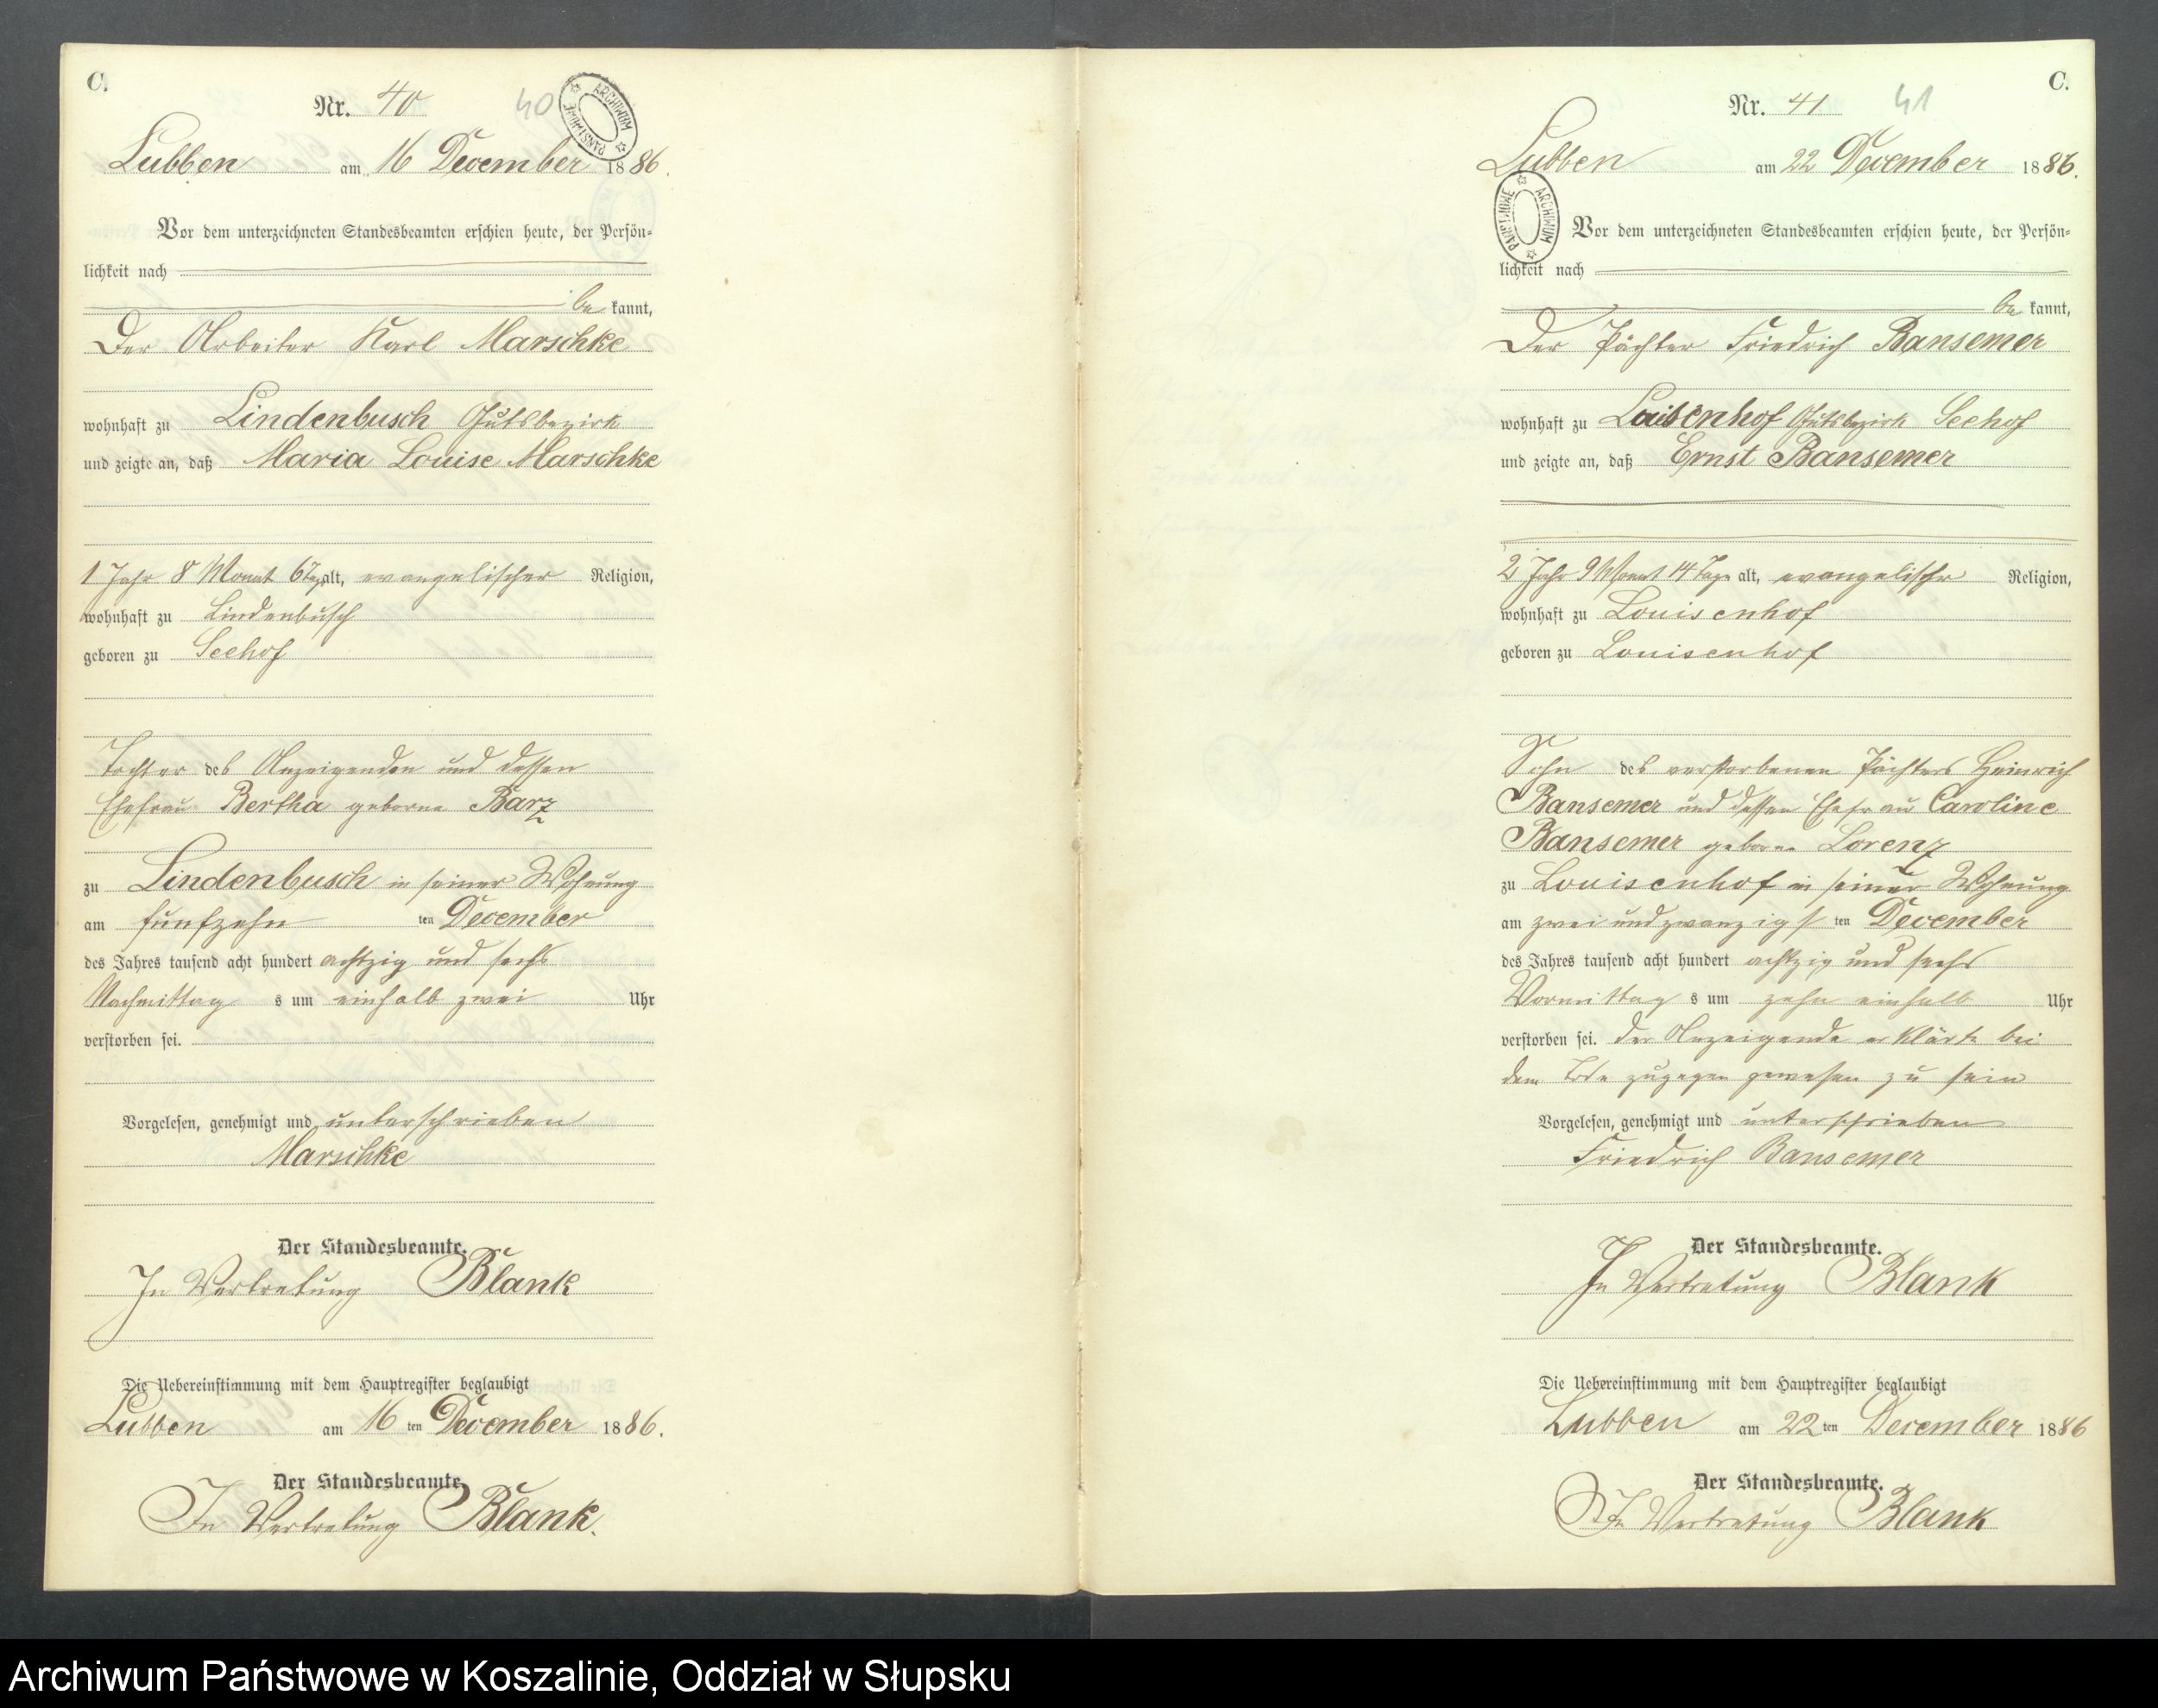 C.
Nr. 40
40
ARCHIWUM PAŃSTWOWE
Lubben am 16 December 1886.
Vor dem unterzeichneten Standesbeamten erschien heute, der Persön-
lichkeit nach
be kannt,
Der Arbeiter Karl Marschke
wohnhaft zu Lindenbusch Gutsbezirk
und zeigte an, daß Maria Louise Marschke
1 Jahr 8 Monat 6 Tg alt, evangelischer Religion,
wohnhaft zu Lindenbusch
geboren zu Seehof
Tochter des Anzeigenden und dessen
Ehefrau Bertha geborne Barz
zu Lindenbusch in seiner Wohnung
am fünfzehn ten December
des Jahres tausend acht hundert achtzig und sechs
Nachmittag s um einhalb zwei Uhr
verstorben sei.
Vorgelesen, genehmigt und unterschrieben
Marschke
Der Standesbeamte.
In Vertretung Blank
Die Uebereinstimmung mit dem Hauptregister beglaubigt
Lubben am 16 ten December 1886.
Der Standesbeamte
In Vertretung Blank.
C.
Nr. 41
41
Lubben am 22 December 1886.
ARCHIWUM PAŃSTWOWE
Vor dem unterzeichneten Standesbeamten erschien heute, der Persön-
lichkeit nach
be kannt,
Der Pächter Friedrich Bansemer
wohnhaft zu Louisenhof Gutsbezirk Seehof
und zeigte an, daß Ernst Bansemer
2 Jahr 9 Monat 14 Tage alt, evangelischer Religion,
wohnhaft zu Louisenhof
geboren zu Louisenhof
Sohn des verstorbenen Pächters Heinrich
Bansemer und dessen Ehefrau Caroline
Bansemer geborne Lorenz
zu Louisenhof in seiner Wohnung
am zwei und zwanzigs ten December
des Jahres tausend acht hundert achtzig und sechs
Vormittag s um zehn einhalb Uhr
verstorben sei. der Anzeigende erklärte bei
dem Tode zugegen gewesen zu sein
Vorgelesen, genehmigt und unterschrieben
Friedrich Bansemer
Der Standesbeamte.
In Vertretung Blank
Die Uebereinstimmung mit dem Hauptregister beglaubigt
Lubben am 22 ten December 1886
Der Standesbeamte.
In Vertretung Blank
Archiwum Państwowe w Koszalinie, Oddział w Słupsku